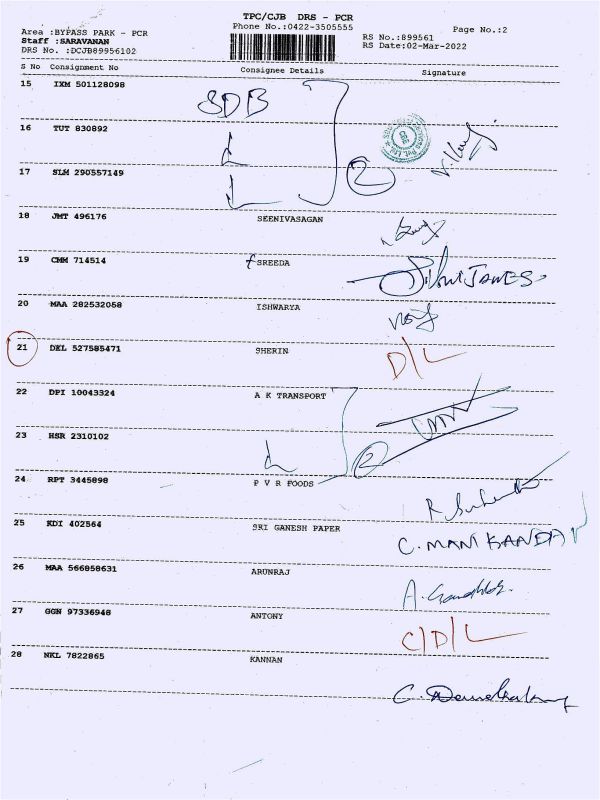 TPC/CJB DRS - PCR
Area :BYPASS PARK - PCR
Phone No.:0422-3505555
Page No.:2
Staff :SARAVANAN
RS No.:899561
DRS No. :DCJB89956102
RS Date:02-Mar-2022
S No Consignment No Consignee Details Signature
15 IXM 501128098 SDB
16 TUT 830892
17 SLM 290557149
2
18 JMT 496176 SEENIVASAGAN
19 CMM 714514 SREEDA JAMES
20 MAA 282532058 ISHWARYA
21 DEL 527585471 SHERIN D/L
22 DPI 10043324 A K TRANSPORT
23 HSR 2310102 2
24 RPT 3445898 P V R FOODS
25 KDI 402564 SRI GANESH PAPER C. MANIKANDAN
26 MAA 566858631 ARUNRAJ
27 GGN 97336948 ANTONY C/D/L
28 NKL 7822865 KANNAN